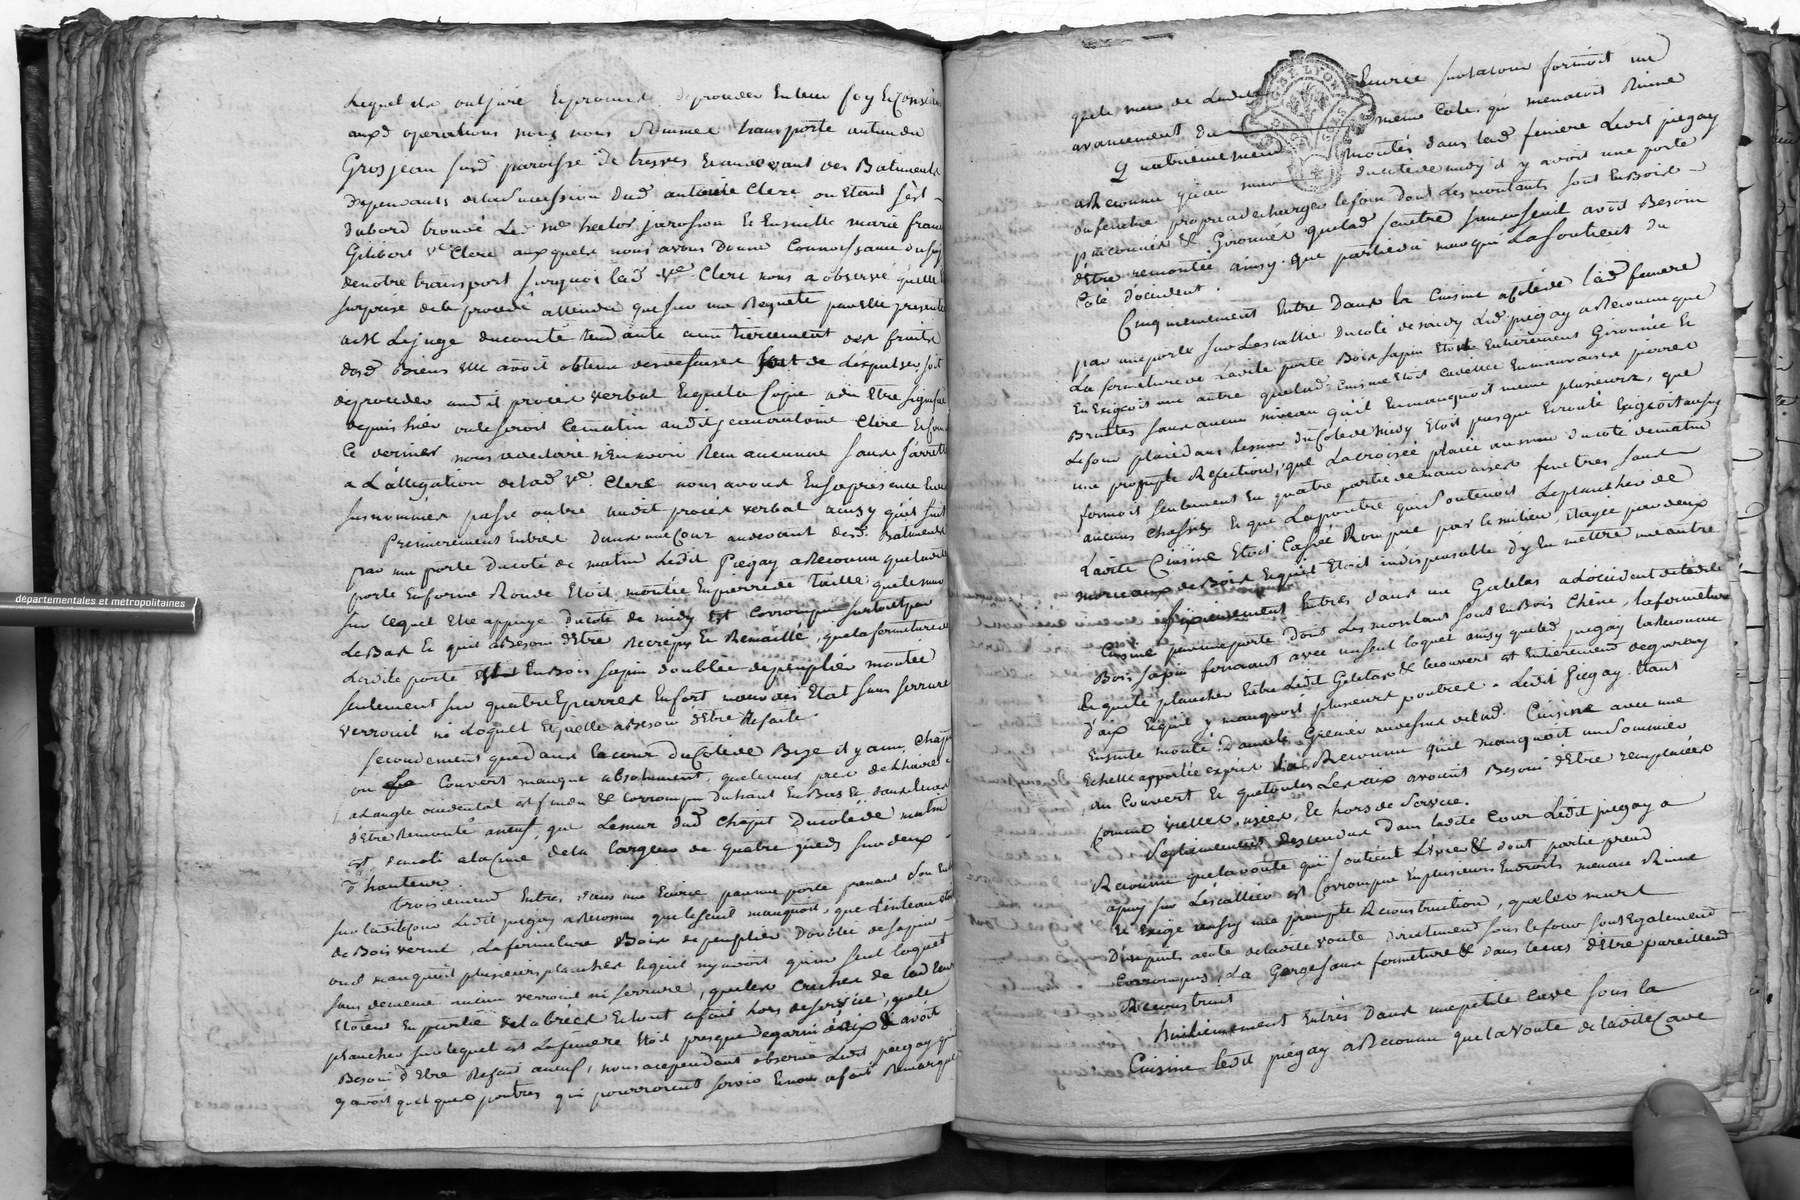 Lequel a oui juré et promis de proceder en leur foy et conscience
auxd operations nous nous sommes transporté au lieu du
Grosjean susd paroisse de treves et au devant des Batiments
dependants de la succession dud antoine Clerc ou etant s'est
d'abord trouvé Led me hector jarosson et Ensuitte marie françoise
Gilibert ve Clerc auxquels nous avons Donné Connoissance du sujet
de notre transport surquoi lad ve Clerc nous a observé qu'elle
surprise de la procedure attendu que sur une Requete par elle presentée
a M Le juge du comté tendante aux tiercement des fruits
desd Biens elle avoit obtenu
de proceder audit procès verbal Et que la Copie a du Etre signifiée
depuis hier ou le seroit Cematin audit jean antoine Clerc et comme
Ce dernier nous a declaré n'En avoir Recu aucune sans s'arreter
a L'allegation de lad ve Clerc nous avons En sa presence
susnommés passé outre audit procès verbal ainsy qu'il suit
Premierement Entrés dans une Cour au devant desd Batiments
par une porte du coté de matin Ledit Piegay a Reconnu que ladite
porte En forme Ronde Etoit montée En pierre de taille que le mur
sur lequel Elle appuye du coté de midy est corrompu surtout par
Le Bas Et qu'il a Besoin d'Etre Recrepy Et Remaillé, que la fermeture de
Ladite porte est En Bois sapin doublée de peuplier montée
seulement sur quatre Eparres En fort mauvais Etat sans serrure
verrouil ni Loquet Et qu'elle a Besoin d'Etre Refaite.
secondement que dans la cour du Coté de Bize il y a un Chapit
ou Le Couvert manque absolument, que le mur près de
a l'angle occidental est fendu & corrompu du haut En Bas Et dans le cas
d'Etre Remonté a neuf, que Le mur dud Chapit Du coté de matin
est demoli a la cime de la largeur de quatre pieds sur deux
d'hauteur.
troisiemement Entrés dans une Ecurie par une porte prenant son Entrée
sur ladite Cour Ledit piegay a Reconnu que le seuil manquoit, que Linteau etoit
de Bois verne, La fermeture Bois de peuplier Doublée de sapin
ou il manquoit plusieurs planches Et qu'il n'y avoit qu'un seul Loquet
sans de meme aucun verrouil ni serrure, que les creches de lad Ecurie
Etoient En partie delabrées Et tout a fait hors de service, que le
plancher sur lequel est La feniere Etoit presque degarni d'aix & avoit
Besoin d'Etre Refait a neuf, nous a cependant observé Ledit piegay qu'il
y avoit quelques poutres qui pourroient servir Et nous a fait Remarquer
que le mur de Ladite Ecurie formoit un
avancement du meme coté qui menacoit Ruine
Quatriemement montés dans lad feniere Ledit piegay
a Reconnu qu'au mur du coté de midy il y avoit une porte
ou fenetre propre a decharger le foin dont Les montants sont En Bois
& Gironnés que lad fenetre sans seuil avoit Besoin
d'Etre remontée ainsy que partie du mur qui La soutient du
Coté d'occident.
Cinquiemement Entré Dans la Cuisine a coté de lad feniere
par une porte sur L'escallier du coté de soir Led piegay a Reconnu que
La fermeture de Ladite porte Bois sapin Etoit Entierement Gironnée Et
En Exigeoit une autre que lad Cuisine Etoit Cadettée En mauvaises pierres
Bruttes sans aucun niveau qu'il En manquoit meme plusieurs, que
Le four placé dans le mur du Coté de midy Etoit presque Ecroulé Exigeoit aussy
une prompte Refection, que La croisée placée au mur du coté de matin
formoit seulement En quatre partie de mauvaises fenetres sans
aucuns Chassis Et que La poutre qui soutenoit Le plancher de
Ladite Cuisine Etoit Cassée Rompue par le milieu, Etayée par deux
morceaux de Bois Et qu'il Etoit indispensable d'y En mettre une autre
Sixiemement Entrés dans un Galetas a l'occident de ladite
Cuisine par une porte dont Les montans sont En Bois Chêne, la fermeture
Bois sapin fermant avec un seul loquet ainsy que led piegay l'a Reconnu
Et que le plancher Entre Ledit Galetas & le couvert est Entierement degarny
d'aix Et qu'il y manquoit plusieurs poutres. Ledit Piegay Etant
Ensuite monté dans le Grenier au dessus de lad Cuisine avec une
Echelle apportée exprès a Reconnu qu'il manquoit un sommier
au Couvert Et que toutes Les aix avoient Besoin d'Etre remplacées
Comme vielles, usées, Et hors de service.
Septiemement descendus dans ladite Cour Ledit piegay a
Reconnu que la voute qui soutient L'Evier & dont partie prend
apuy sur L'escallier est Corrompue En plusieurs Endroits menace Ruine
Et Exige aussy une prompte Reconstruction, que les murs
D'appuis a coté de ladite voute directement sous le four sont Egalement
Corrompus, La Gorge sans fermeture & dans le cas d'Etre pareillement
Reconstruit
Huitiemement Entrés Dans une petite Cave sous la
Cuisine Ledit piegay a Reconnu que la voute de ladite Cave
départementales et métropolitaines